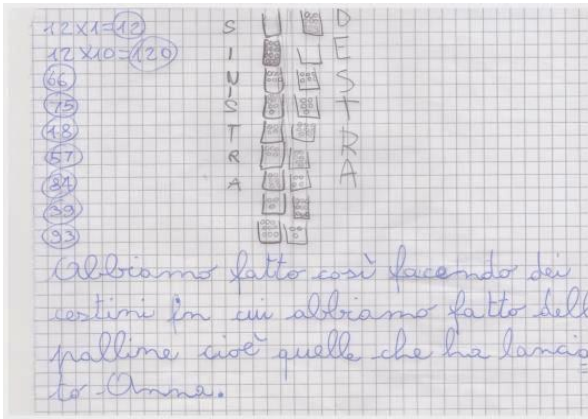 12×1=12
12×10=120
66
75
48
57
84
39
93
SINISTRA
DESTRA
Abbiamo fatto così facendo dei
cestini in cui abbiamo fatto dell
palline cioè quelle che ha lancia
to Anna.